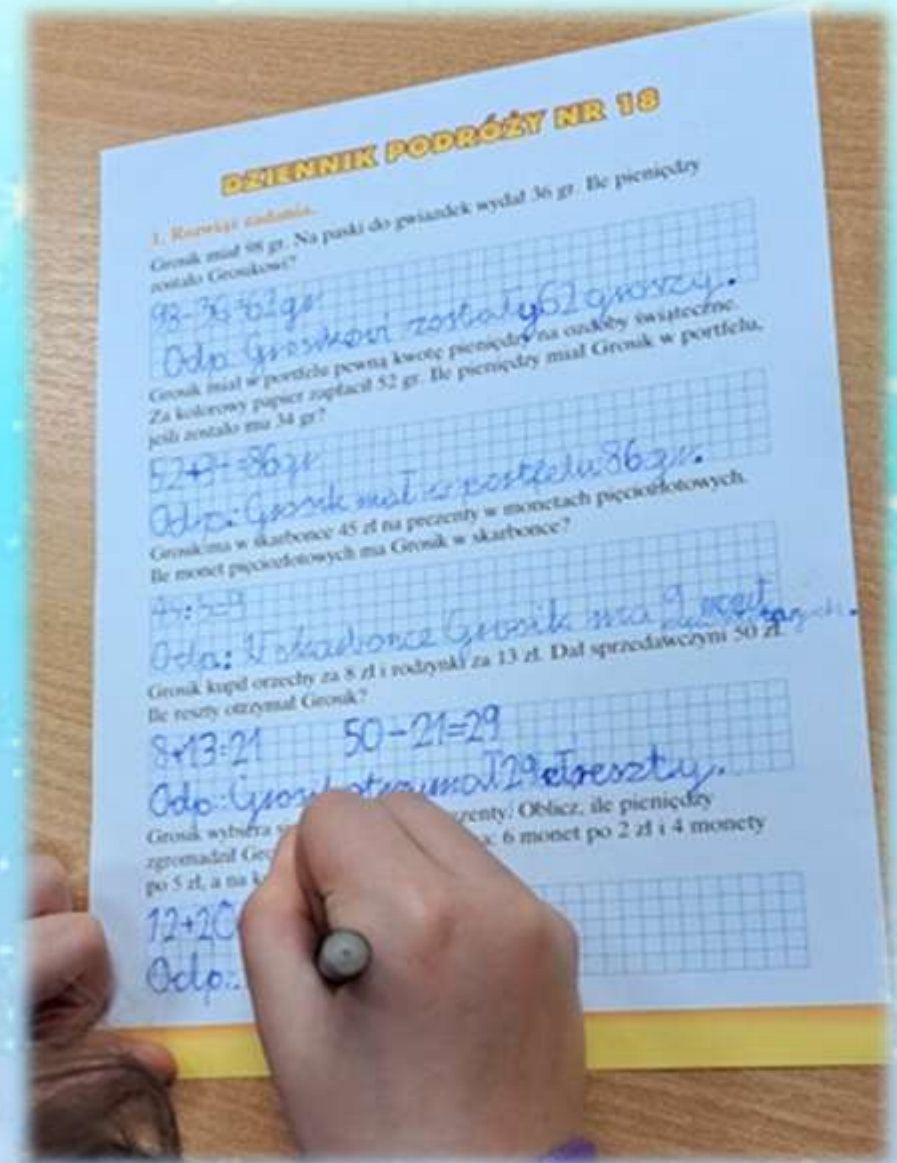 DZIENNIK PODRÓŻY NR 18
1. Rozwiąż zadania.
Grosik miał 98 gr. Na paski do gwiazdek wydał 36 gr. Ile pieniędzy
zostało Grosikowi?
98-36=62 gr
Odp. Grosikowi zostały 62 groszy.
Grosik miał w portfelu pewną kwotę pieniędzy na ozdoby świąteczne.
Za kolorowy papier zapłacił 52 gr. Ile pieniędzy miał Grosik w portfelu,
jeśli zostało mu 34 gr?
=86gr
Odp.: Grosik miał w portfelu 86 gr.
Grosik ma w skarbonce 45 zł na prezenty w monetach pięciozłotowych.
Ile monet pięciozłotowych ma Grosik w skarbonce?
45:5=9
Odp.: W skarbonce Grosik ma 9
Grosik kupił orzechy za 8 zł i rodzynki za 13 zł. Dał sprzedawczyni 50 zł.
Ile reszty otrzymał Grosik?
8+13=21 50-21=29
Odp.: Grosik otrzymał 29 zł reszty.
Grosik wybiera prezenty. Oblicz, ile pieniędzy
zgromadził 6 monet po 2 zł i 4 monety
po 5 zł, a na
12+20
Odp.: